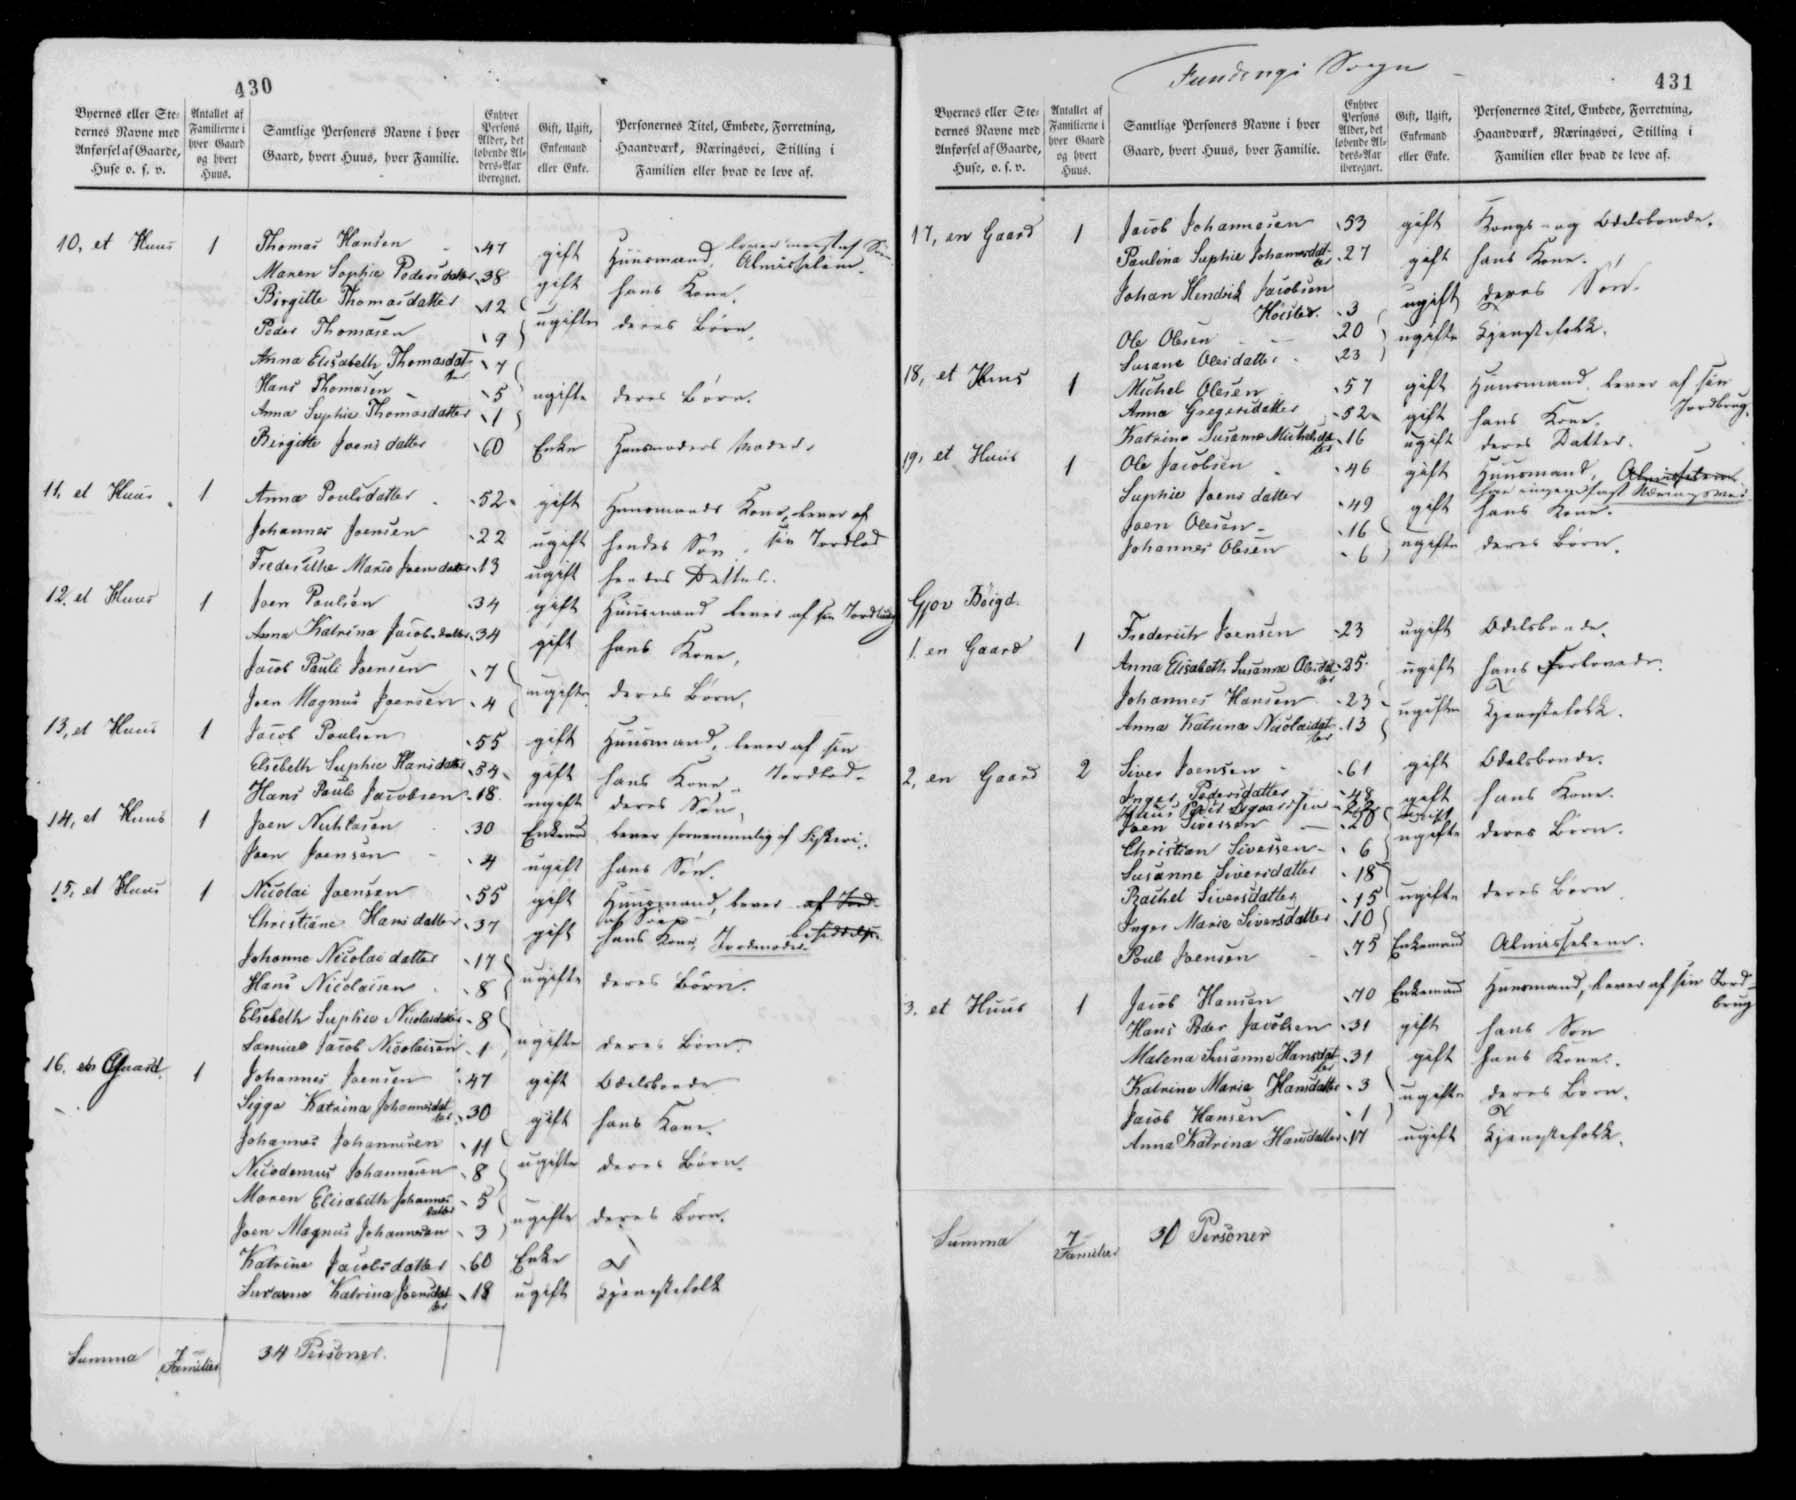 430
Byernes eller Ste-
dernes Navne med
Anførsel af Gaarde,
Huse o. s. v.
Antallet af
Familierne i
hver Gaard
og hvert
Huus.
Samtlige Personers Navne i hver
Gaard, hvert Huus, hver Familie.
Enhver
Persons
Alder, det
løbende Al-
ders-Aar
iberegnet.
Gift, Ugift,
Enkemand
eller Enke.
Personernes Titel, Embede, Forretning,
Haandværk, Næringsvei, Stilling i
Familien eller hvad de leve af.
10, et Huus 1 Thomas Hansen 47 gift Huusmand, Almisselem.
Maren Sophie Pedersdatter 38 gift hans Kone.
Birgitte Thomasdatter 12 ugifte deres Børn.
Peder Thomasen 9
Anna Elisabeth Thomasdatter 7
Hans Thomasen 5 ugifte deres Børn.
Anna Suphie Thomasdatter 1
Birgitte Joensdatter 60 Enke Huusmoders Moder.
11, et Huus 1 Anna Poulsdatter 52 gift Huusmands Kone, lever af
sin Jordlod
Johannes Joensen 22 ugift hendes Søn
Frederikke Marie Joensdatter 13 ugift hendes Datter.
12. et Huus 1 Joen Poulsen 34 gift Huusmand lever af sin Jordlod
Anna Katrina Jacobsdatter 34 gift hans Kone,
Jacob Pauli Joensen 7 ugifte deres Børn.
Joen Magnus Joensen 4
13, et Huus 1 Jacob Poulsen 55 gift Huusmand, lever af sin
Jordlod
Elsebeth Suphie Hansdatter 54 gift hans Kone
Hans Pauli Jacobsen 18 ugift deres Søn
14, et Huus 1 Joen Nichlasen 30 Enkemd lever fornemmelig af Fiskeri.
Joen Joensen 4 ugift hans Søn.
15, et Huus 1 Nicolai Joensen 55 gift Huusmand, lever af Jord-
Christiane Hansdatter 37 gift hans Kone, Jordmoder
Johanne Nicolaidatter 17 ugifte deres Børn.
Hans Nicolaisen 8
Elsebeth Suphie Nicolaidatter 8 ugifte deres Børn.
Samuel Jacob Nicolaisen 1
16. en Gaard 1 Johannes Joensen 47 gift Odelsbonde
Sigga Katrina Johannesdatter 30 gift hans Kone.
Johannes Johannesen 11 ugifte deres Børn.
Nicodemus Johannesen 8
Maren Elisabeth Johannesdatter 5 ugifte deres Børn.
Joen Magnus Johannesen 3
Katrine Jacobsdatter 60 Enke
Susanne Katrina Joensdatter 18 ugift Tjenestefolk
Summa 7 Familier 34 Personer.
Fundings Sogn
431
Byernes eller Ste-
dernes Navne med
Anførsel af Gaarde,
Huse, o. s. v.
Antallet af
Familierne i
hver Gaard
og hvert
Huus.
Samtlige Personers Navne i hver
Gaard, hvert Huus, hver Familie.
Enhver
Persons
Alder, det
løbende Al-
ders-Aar
iberegnet.
Gift, Ugift,
Enkemand
eller Enke.
Personernes Titel, Embede, Forretning,
Haandværk, Næringsvei, Stilling i
Familien eller hvad de leve af.
17, en Gaard 1 Jacob Johannesen 53 gift Kongs- og Odelsbonde.
Paulina Suphie Johannesdatter 27 gift hans Kone.
Johan Hendrik Jacobsen
Høisted. 3 ugift deres Søn.
Ole Olesen 20 ugifte Tjenestefolk.
Susane Olesdatter 23
18, et Huus 1 Michel Olesen 57 gift Huusmand. lever af sin
Jordbrug.
Anna Gregersdatter 52 gift hans Kone.
Katrine Susanne Michelsdatter 16 ugift deres Datter.
19, et Huus 1 Ole Jacobsen 46 gift Huusmand, Almisselem
Suphie Joensdatter 49 gift hans Kone.
Joen Olesen 16 ugifte deres Børn.
Johannes Olesen 6
Gjov Böigd.
1. en Gaard 1 Frederich Joensen 23 ugift Odelsbonde.
Anna Elisabeth Susanna Olesdatter 25 ugift hans Forlovede.
Johannes Hansen 23 ugifte Tjenestefolk.
Anna Katrina Nicolaidatter 13
2, en Gaard 2 Siver Joensen 61 gift Odelsbonde.
Inger Pedersdatter 48 gift hans Kone.
Joen Siversen 20 ugifte deres Børn.
Christian Siversen 6
Susanne Siversdatter 18
Rachel Siversdatter 15 ugifte deres Børn
Inger Marie Siversdatter 10
Poul Joensen 75 Enkemand Almisselem.
3. et Huus 1 Jacob Hansen 70 Enkemand Huusmand, lever af sin Jord-
brug
Hans Peder Jacobsen 31 gift hans Søn
Malena Susanne Hansdatter 31 gift hans Kone.
Katrine Marie Hansdatter 3 ugifte deres Børn.
Jacob Hansen 1
Anna Katrina Hansdatter 17 ugift Tjenestefolk.
Summa 7 Familier 30 Personer